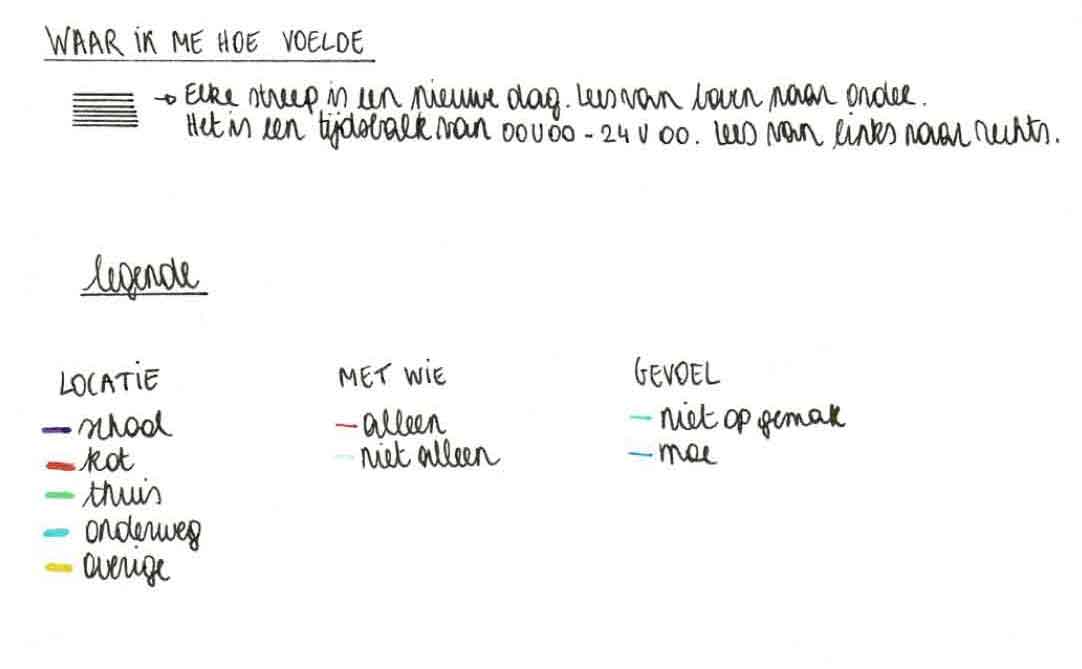 WAAR iK ME HOE VOELDE
→ Elke streep is een nieuwe dag. Lees van boven naar onder.
Het is een tijdsbalk van 00u00 - 24u00. Lees van links naar rechts.
legende
LOCATiE
school
kot
thuis
onderweg
overige
MET WiE
alleen
niet alleen
GEVOEL
niet op gemak
moe